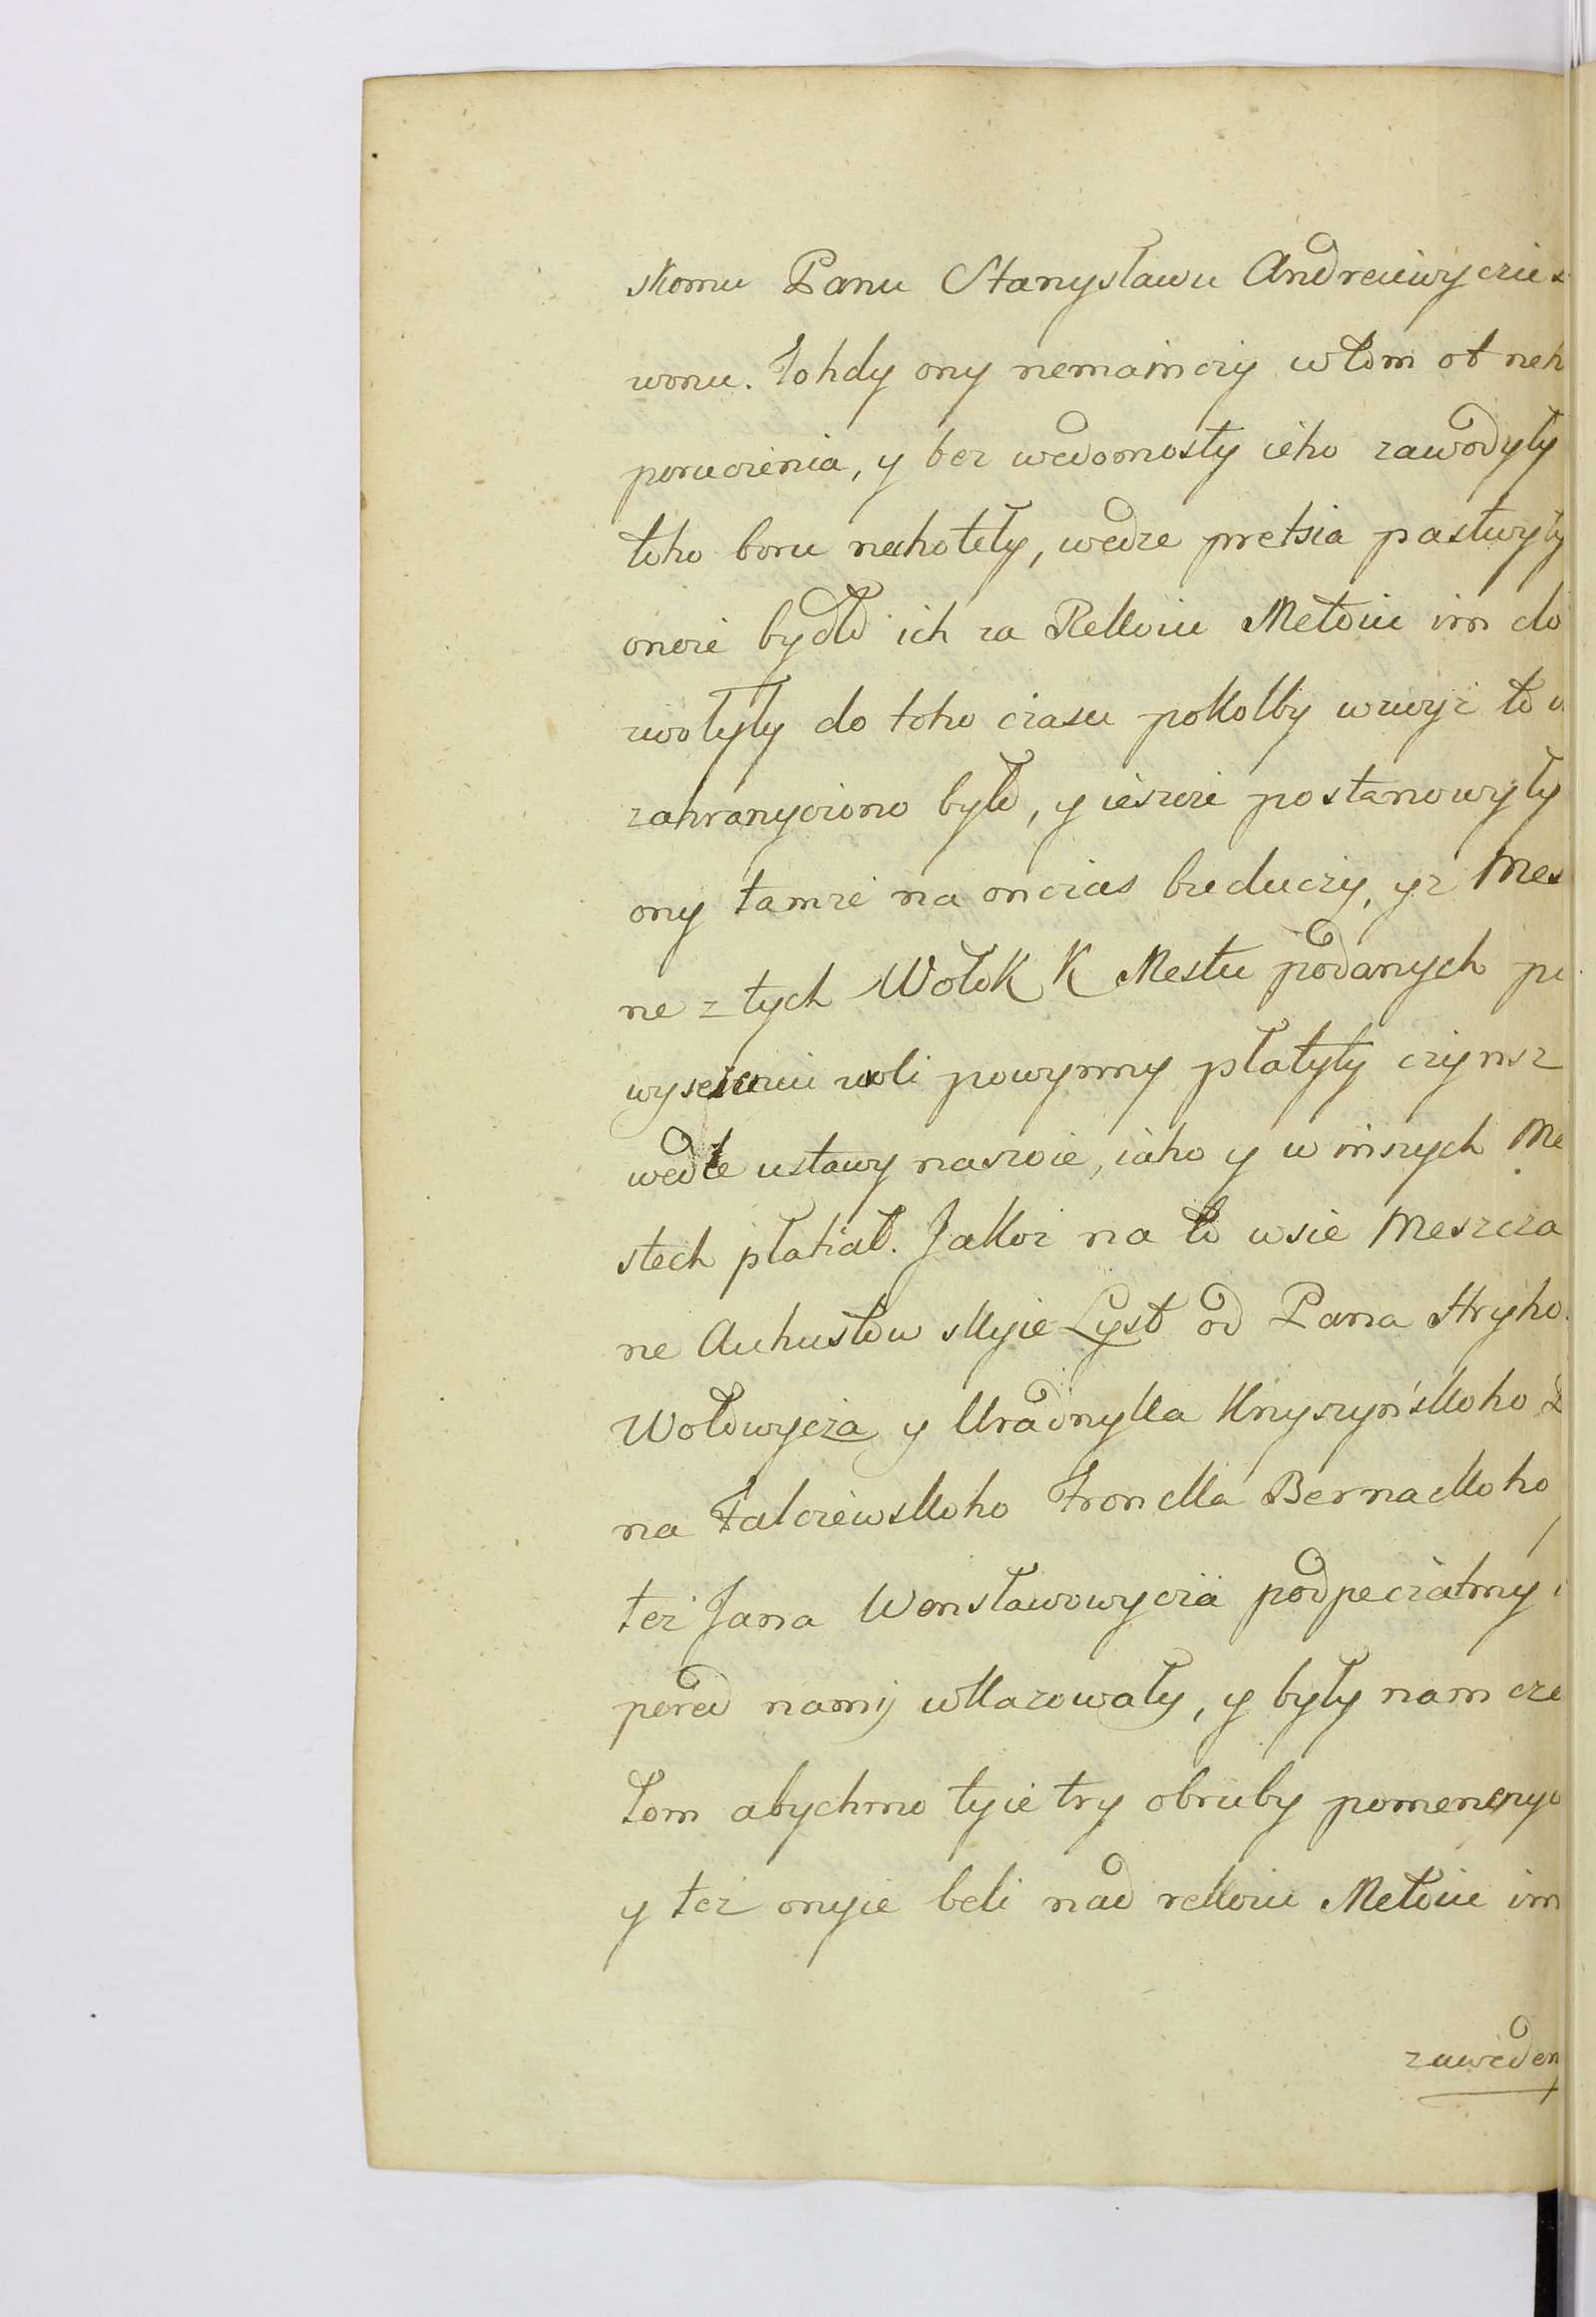 skomu Panu Stanysławu Andreiewyczu
wonu. Tohdy ony nemaiuczy w tom ot neh
poruczenia, y bez wedomosty ieho zawodyty
toho boru nechotely, wedze pretsia pastwyty
oneze bydło ich za Rekoiu Metoiu im do
zwolyly do toho czasu pokolby wzwyż to
zahranyczono było, y ieszcze postanowyły
ony tamże na onczas buduczy, yz Mes
ne z tych Wołok K Mestu podanych po
wyseżeniu woli powynny płatyty czynsz
wedle ustawy naszoie, iako y w inszych Me
stech płatiat. Jakoż na to wsie Meszcza
ne Auhustowskyie Lyst od Pana Hryho
Wołowycza y Uradnyka Knyszyńskoho
na Falczewskoho Froncka Bernackoho
też Jana Wonsławowycza podpeczatmy
pered namij ukazowały, y były nam cze
łom abychmo tyie try obruby pomenenyo
y też onyie beli nad rekoiu Metoiu im
zaweden